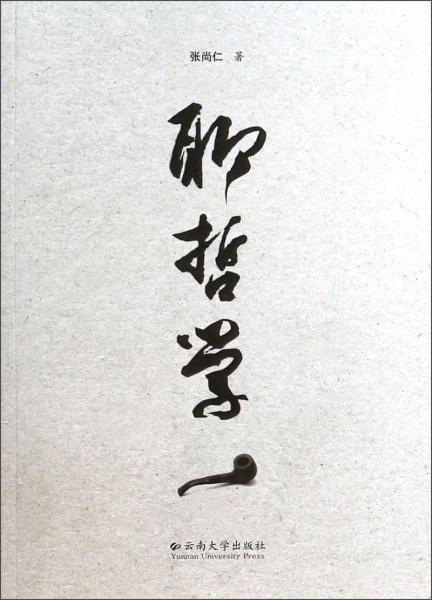 张尚仁 著
聊哲学
云南大学出版社
Yunnan University Press